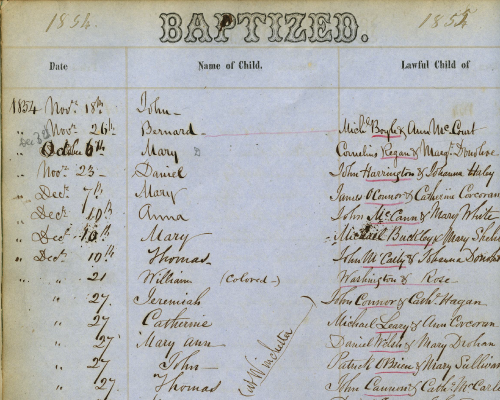 1854. BAPTIZED. 1854
Date Name of Child. Lawful Child of
1854 Novr. 18th John
" Novr. 26th Bernard Michl Boyle & Ann McCourt
Dec 3d
" October 6th Mary Cornelius Regan & Margt. Donohoe
" Novr. 23 Daniel John Harrington & Johanna Huley
" Decr. 7th Mary James O'Connor & Catherine Corcoran
" Decr. 10th Anna John McCann & Mary White
" Decr. 10th Mary Michael Buckley & Mary
" Decr. 19th Thomas John McCatty & Johanna
" " 21 William (Colored) Washington & Rose
" 27. Jeremiah John Connor & Cath. Hagan
" 27 Catherine Michael Leary & Ann Corcoran
" 27 Mary Ann Daniel & Mary Drohan
" 27 John Patrick O'Brien & Mary Sullivan
" 27. Thomas John Cannon & Cath.
at Winchester